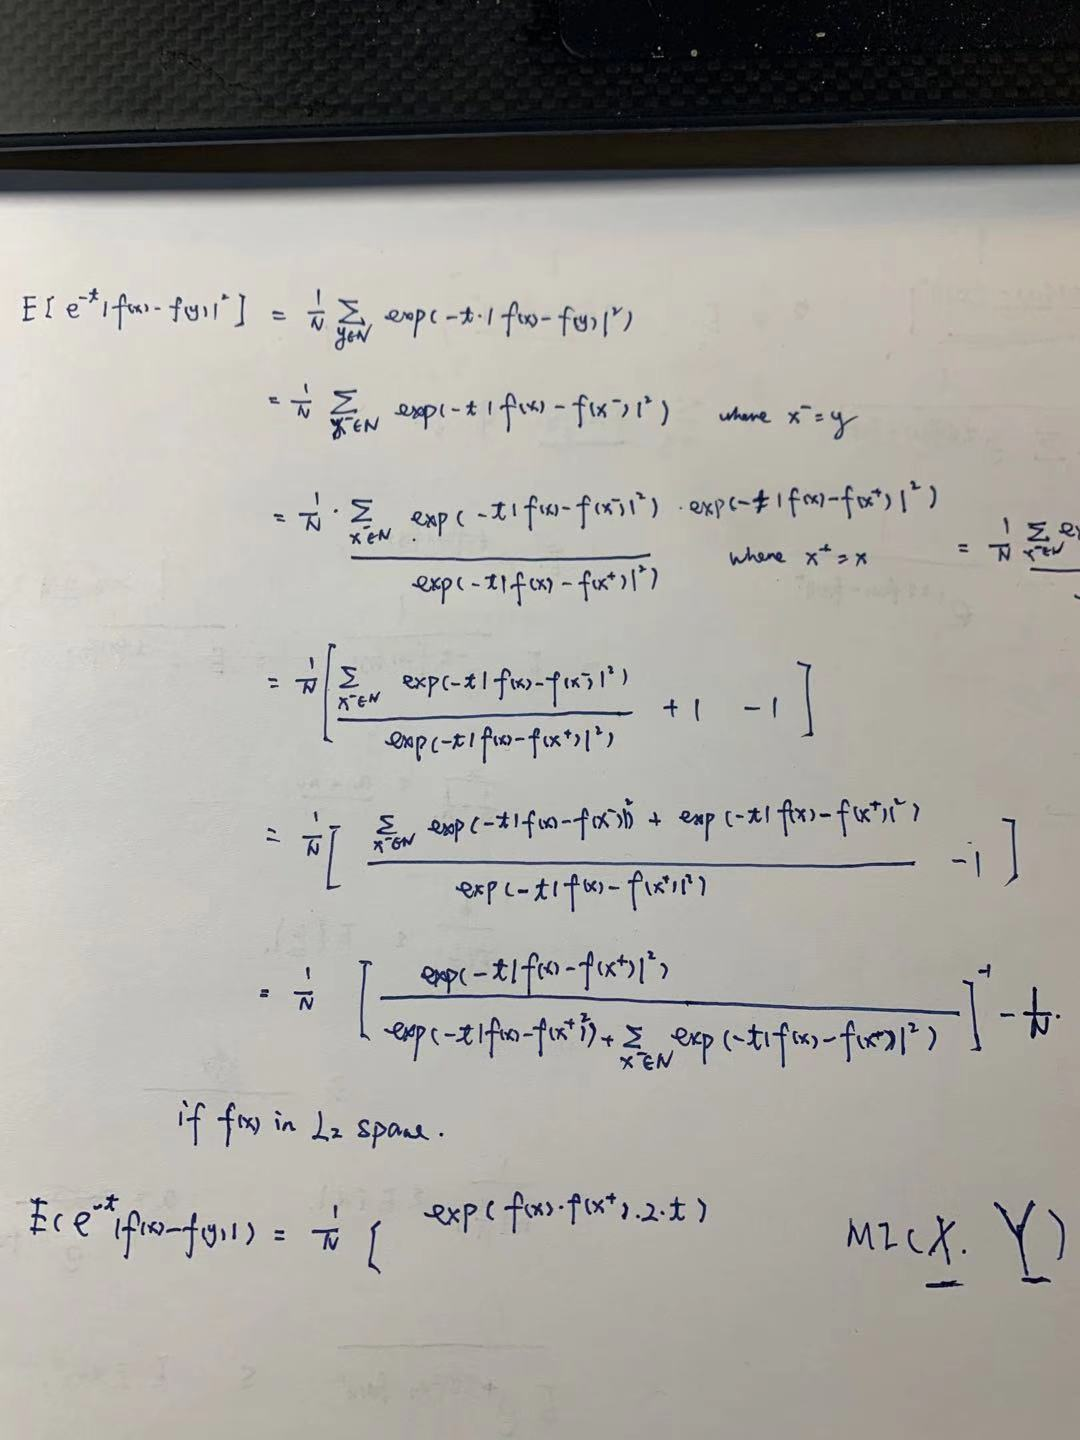 E[e^{-t|f(x)-f(y)|^2}] = 1/N Σ_{y∈N} exp(-t·|f(x)-f(y)|^2)
= 1/N Σ_{x^-∈N} exp(-t|f(x)-f(x^-)|^2) where x^- = y
= 1/N · Σ_{x^-∈N} exp(-t|f(x)-f(x^-)|^2) · exp(-t|f(x)-f(x^+)|^2)
exp(-t|f(x)-f(x^+)|^2) where x^+ = x = 1/N Σ_{x^-∈N}
= 1/N [ Σ_{x^-∈N} exp(-t|f(x)-f(x^-)|^2) + 1 - 1 ]
exp(-t|f(x)-f(x^+)|^2)
= 1/N [ Σ_{x^-∈N} exp(-t|f(x)-f(x^-)|)^2 + exp(-t|f(x)-f(x^+)|^2) - 1 ]
exp(-t|f(x)-f(x^+)|^2)
= 1/N [ exp(-t|f(x)-f(x^+)|^2) ]^{-1} - 1/N.
exp(-t|f(x)-f(x^+)^2|) + Σ_{x^-∈N} exp(-t|f(x)-f(x^+)|^2)
if f(x) in L2 space.
E(e^{-t|f(x)-f(y)|}) = 1/N [ exp(f(x)·f(x^+)·2·t) MI(X. Y)